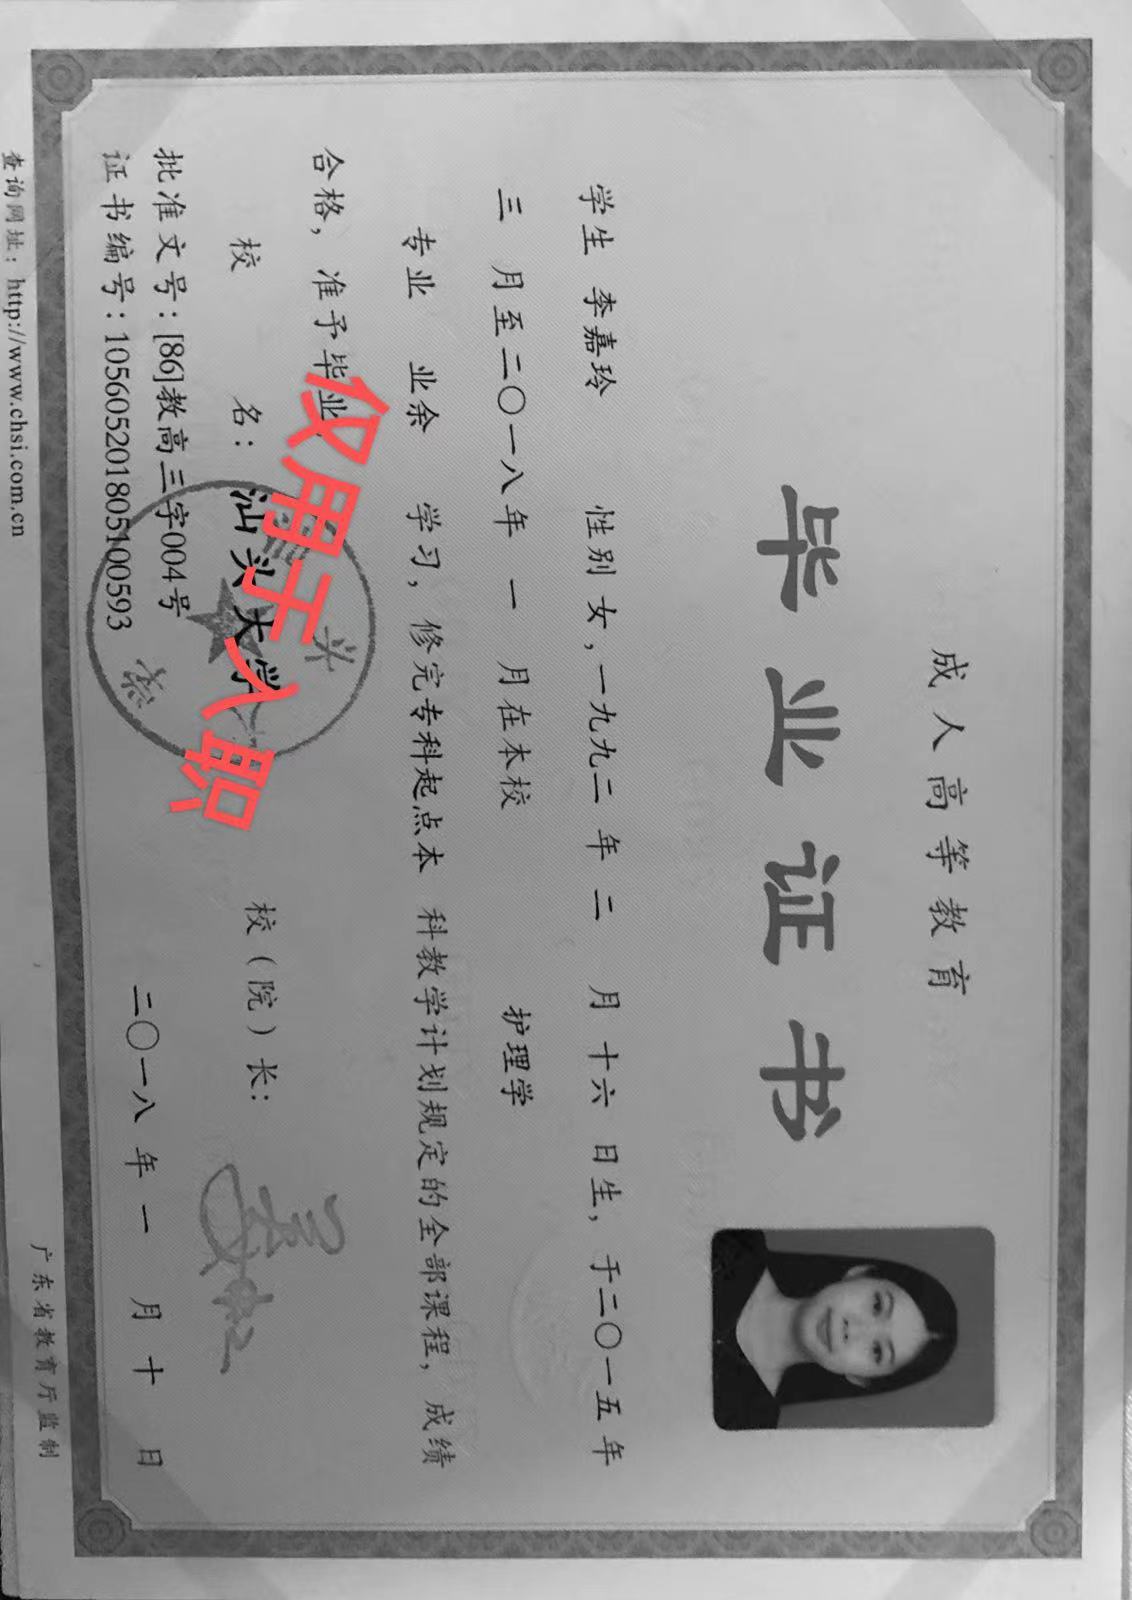 成人高等教育
毕业证书
学生 李嘉玲 性别 女，一九九二年 二 月十六日生，于二〇一五年
三 月至二〇一八年 一 月在本校 护理学
专业 业余 学习，修完专科起点本 科教学计划规定的全部课程，成绩
合格，准予毕业。
校 名：汕头大学 校（院）长：
批准文号：[86]教高三字004号
证书编号：105605201805100593 二〇一八年 一 月 十 日
查询网址：http://www.chsi.com.cn 广东省教育厅监制
仅用于入职